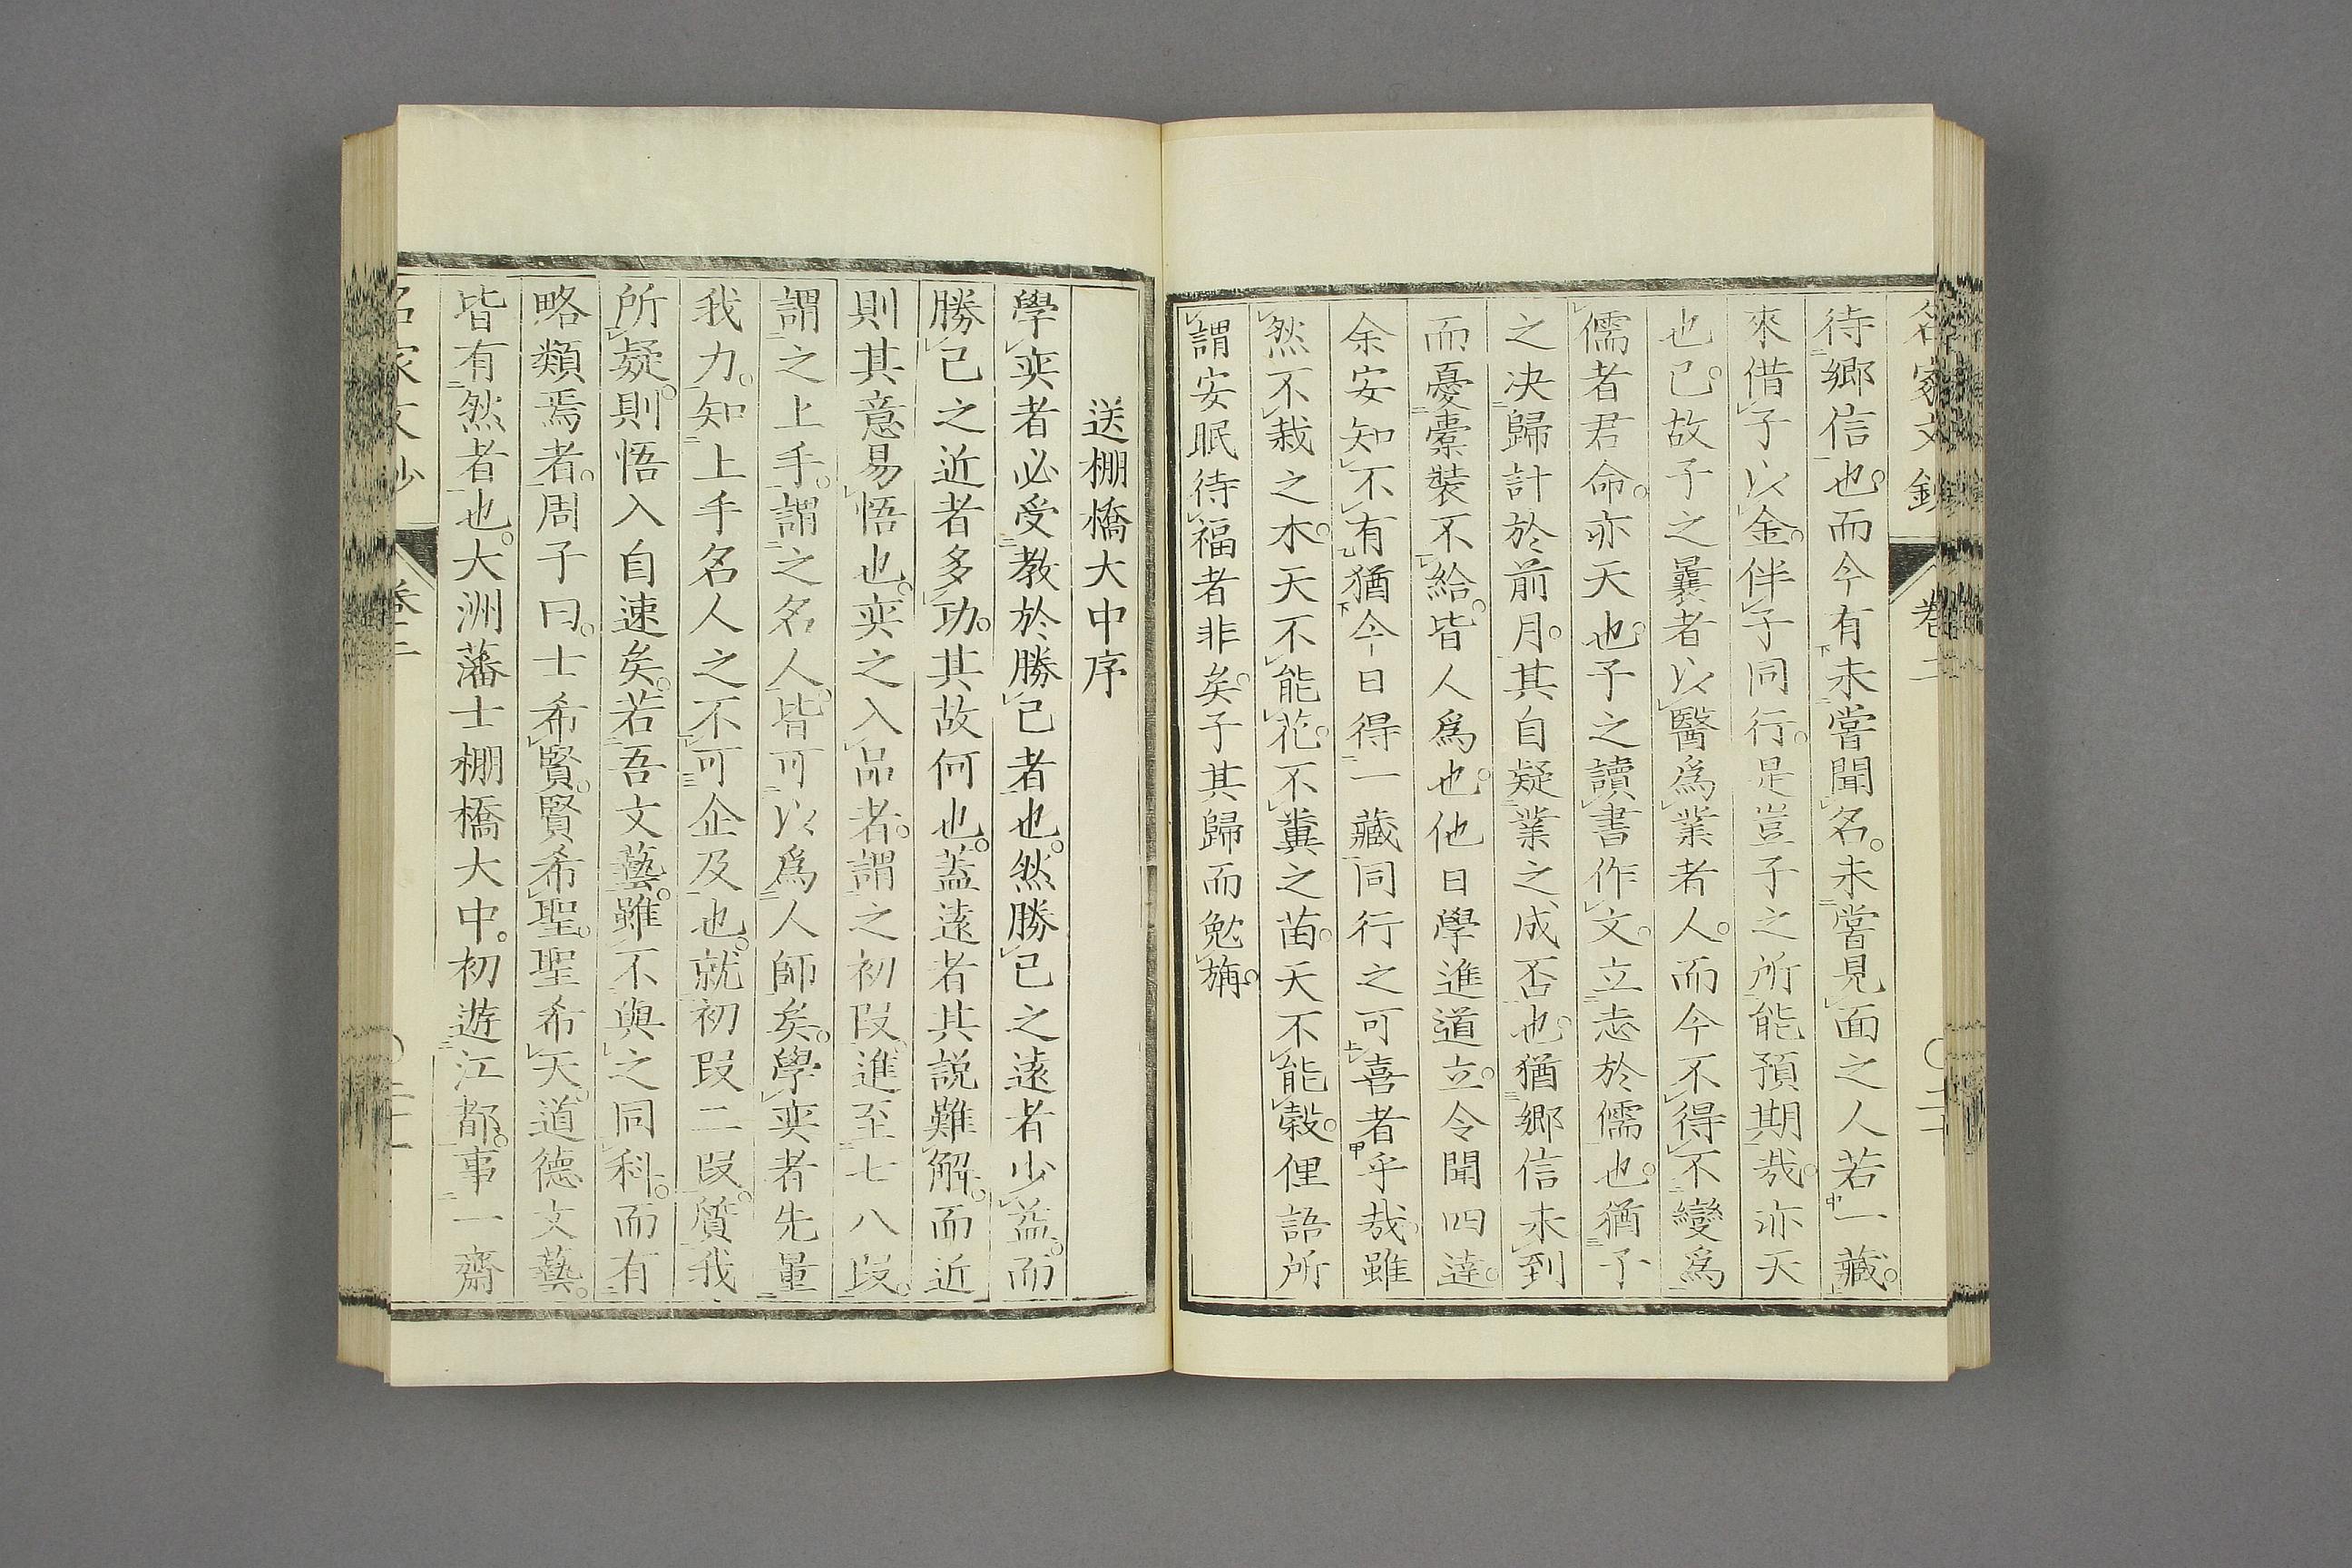 名家文鈔 卷二 〇二十
待鄕信也。而今有未嘗聞名。未嘗見面之人若一藏。
來借子以金。伴子同行。是豈子之所能預期哉。亦天
也已。故子之曩者以醫爲業者人。而今不得不變爲
儒者君命。亦天也。子之讀書作文。立志於儒也。猶予
之决歸計於前月。其自疑業之成否也。猶鄕信未到
而憂橐裝不給。皆人爲也。他日學進道立。令聞四達。
余安知不有猶今日得一藏同行之可喜者乎哉。雖
然不栽之木。天不能花。不糞之苗。天不能穀。俚語所
謂安眠待福者非矣。子其歸而勉旃。
送棚橋大中序
學奕者必受教於勝己者也。然勝己之遠者少益。而
勝己之近者多功。其故何也。蓋遠者其説難解。而近
則其意易悟也。奕之入品者。謂之初段。進至七八段。
謂之上手。謂之名人。皆可以爲人師矣。學奕者先量
我力。知上手名人之不可企及也。就初段二段。質我
所疑。則悟入自速矣。若吾文藝。雖不與之同科。而有
略類焉者。周子曰。士希賢。賢希聖。聖希天。道德文藝。
皆有然者也。大洲藩士棚橋大中。初遊江都。事一齋